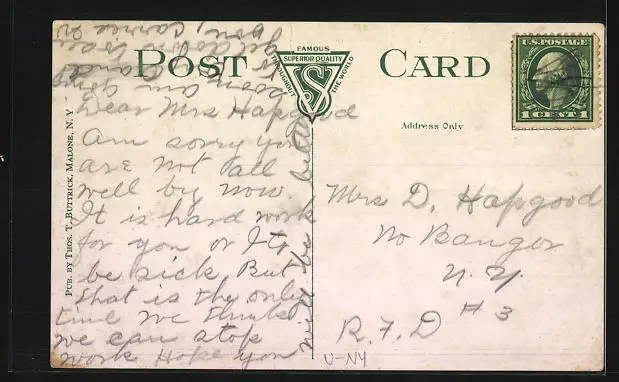 POST CARD
FAMOUS
SUPERIOR QUALITY
THROUGHOUT THE WORLD
S
U.S. POSTAGE
1 CENT 1
Address Only
PUB. BY THOS. T. BUTTRICK, MALONE, N. Y.
Dear Mrs Hapgood
Am sorry you
are not all
well by now
It is hard work
for you or I to
be sick But
that is the only
time we think
we can stop
work Hope you
will be better
soon am
and
down
Mrs D. Hapgood
No Bangor
N. Y.
R. F. D # 3
U-NY